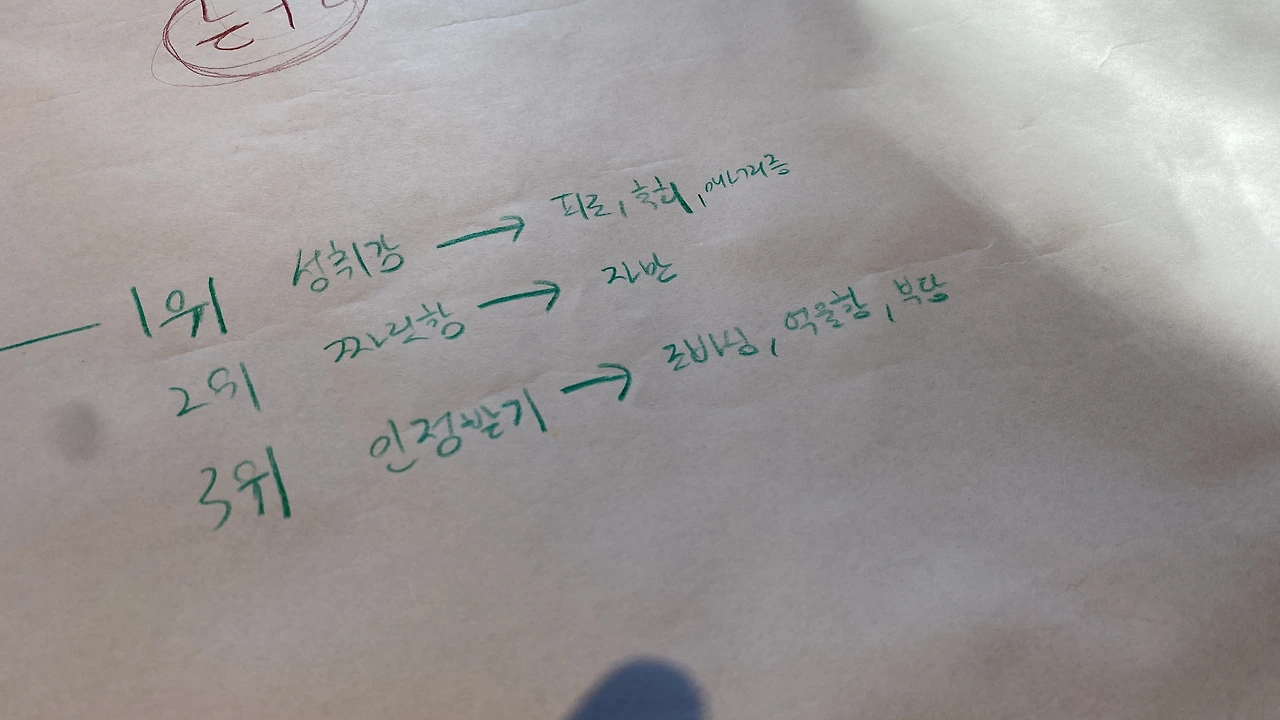 1위 성취감 → 피로, 후회, 매너리즘
2위 짜릿함 → 자만
3위 인정받기 → 로비성, 억울함, 부담